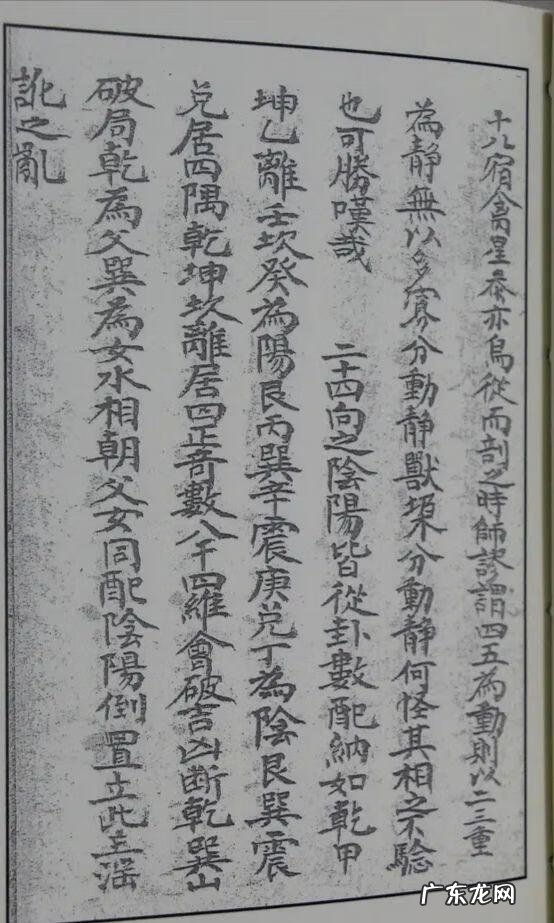 十八宿禽星泰亦烏從而剖之時師謬謂四五為動則以二三重
為靜無以多寡分動靜獸環分動靜何怪其相之不驗
也可勝嘆哉 二十四向之陰陽皆從卦數配納如乾甲
坤乙離壬坎癸為陽艮丙巽辛震庚兌丁為陰艮巽震
兌居四隅乾坤坎離居四正奇數八干四維會破吉凶斷乾巽山
破局乾為父巽為女水相朝父女同配陰陽倒置立此主淫
訛之亂
广东龙网